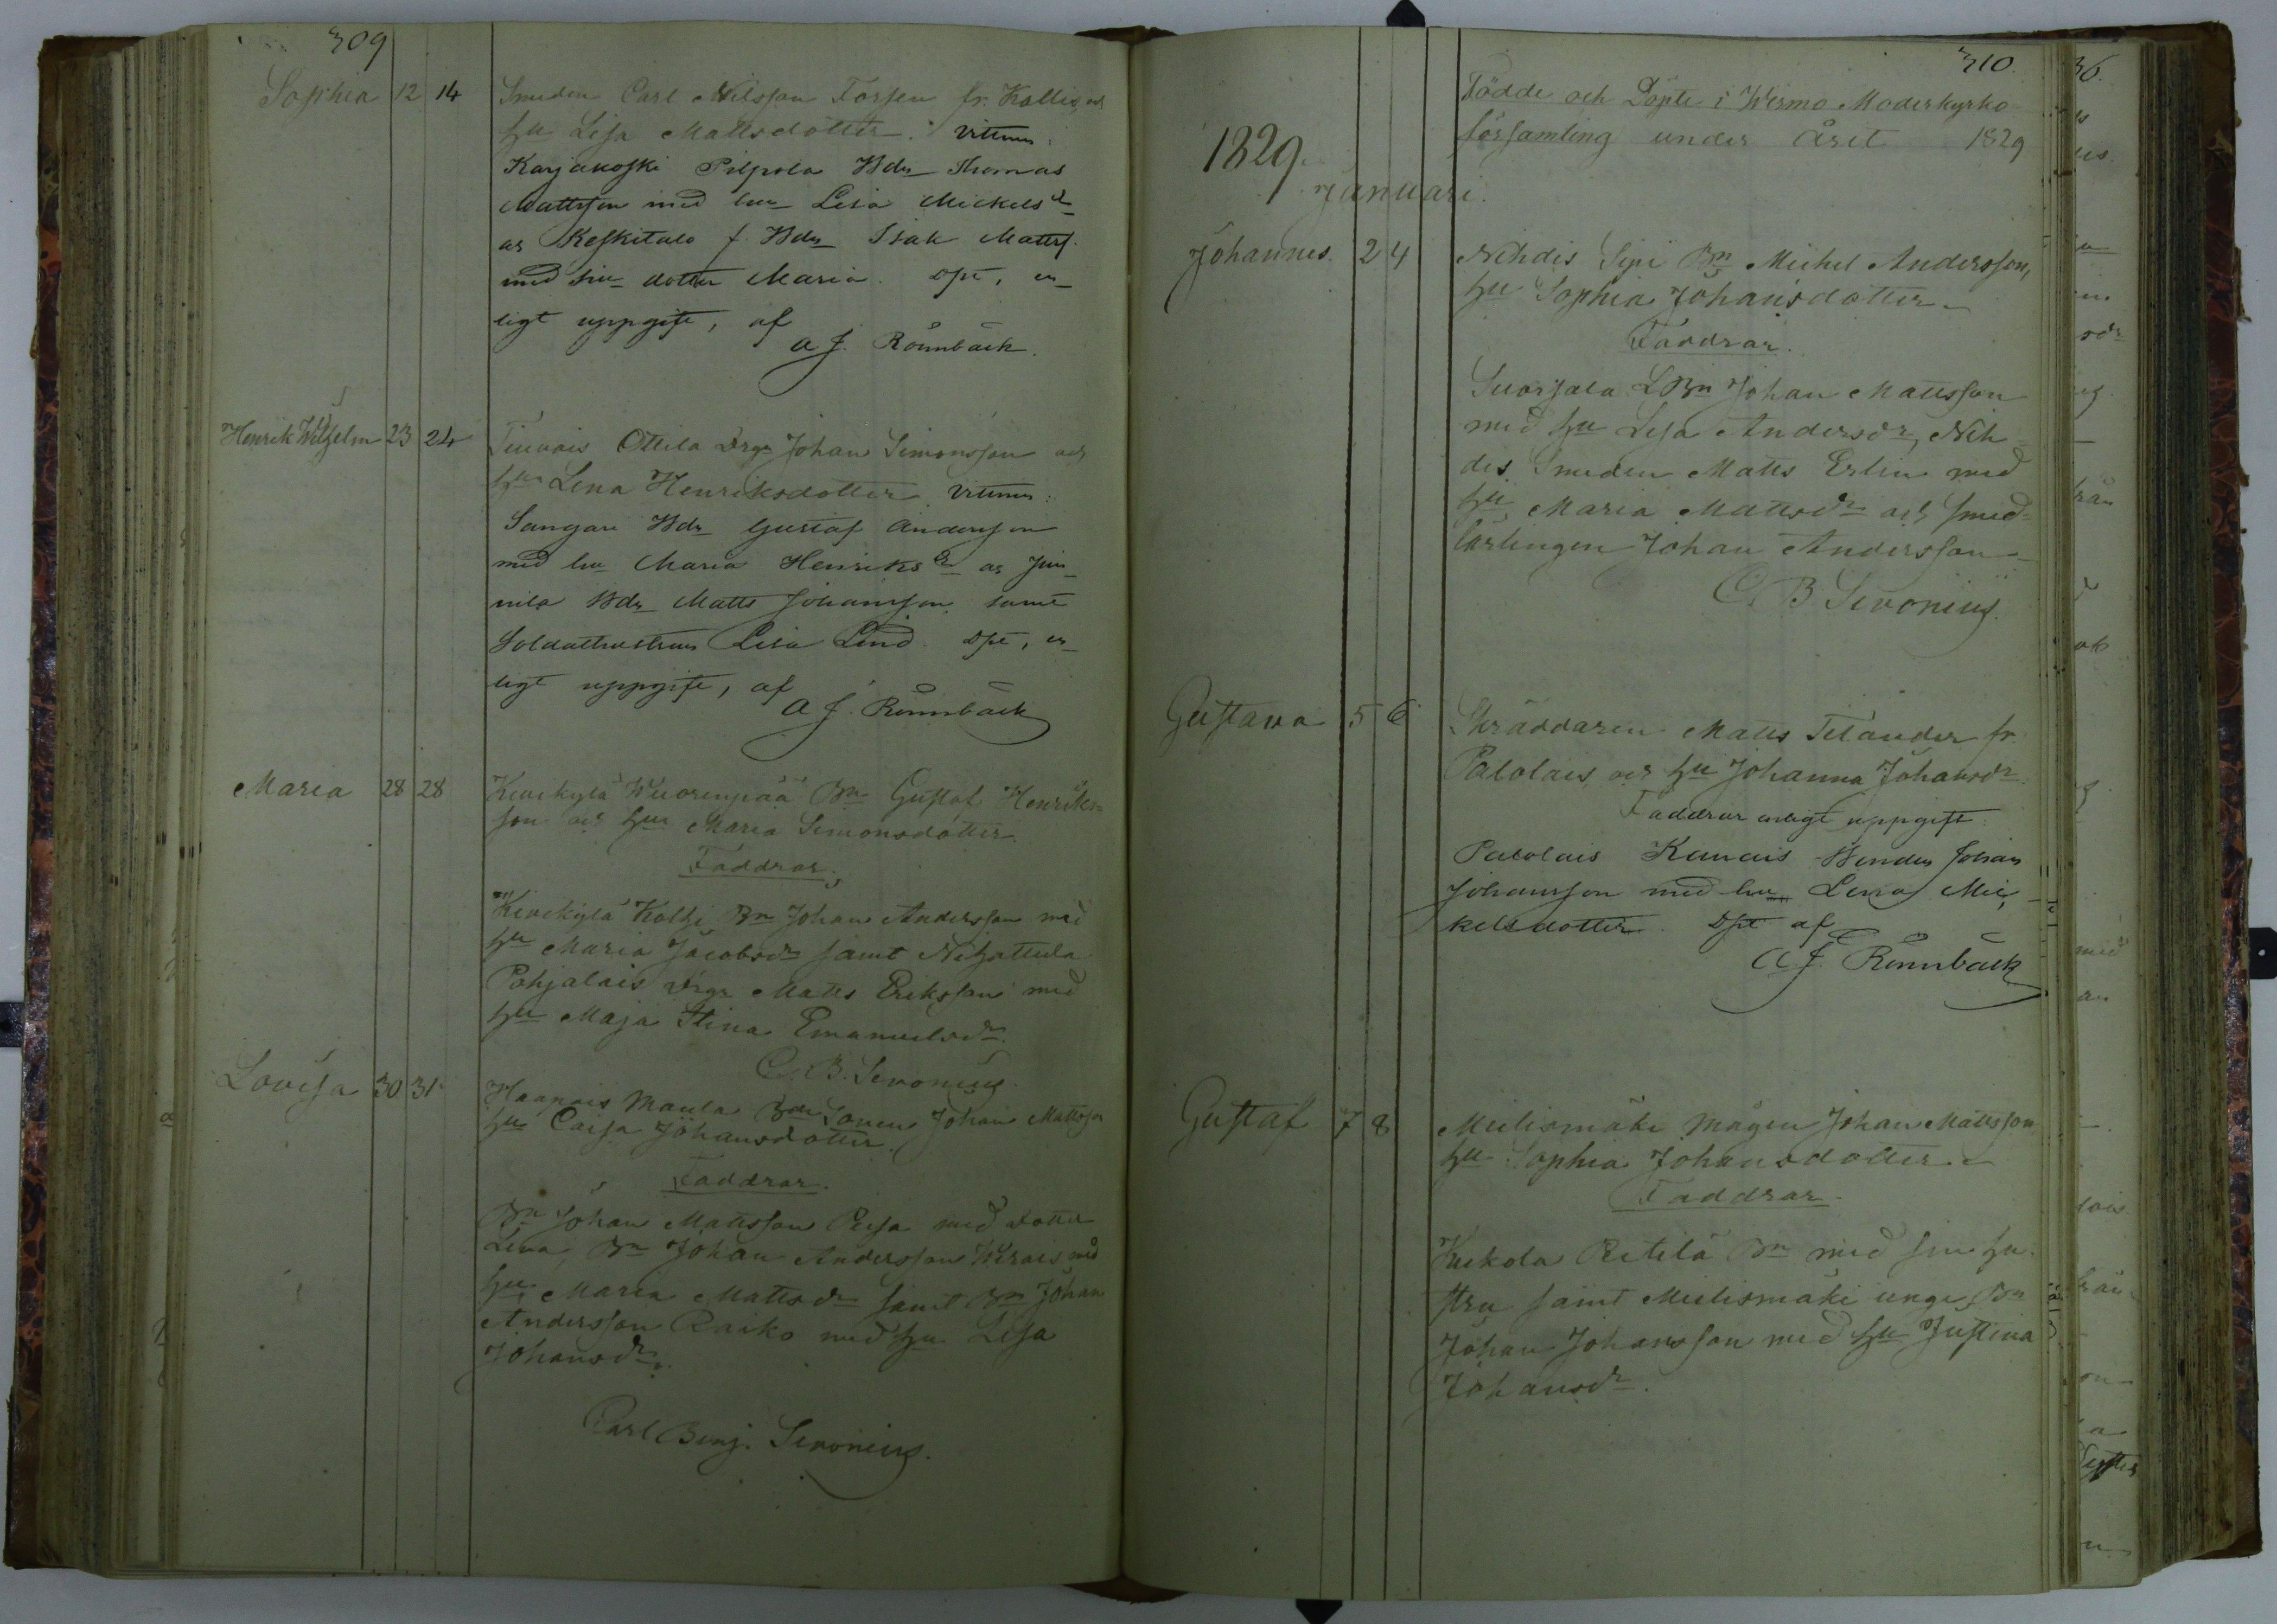 309
Sophia 12 14 Smeden Carl Nilsson Forsen fr. Kallis, och
hu Lisa Mattsdotter. Vittnen:
Karjakoski Pilpola Bdn Thomas
Mattsson med hu Lisa Mickels dr
os Keskitalo f. Bdn Isak Matts.
med sin dotter Maria. Dpt, en-
ligt uppgift, af
A J. Rönnbäck.
Henrik Wilhelm 23 24 Tiuvais Ottila Drgn Johan Simonsson och
hu Lena Henriksdotter Vittnen:
Sangari Bdn Gustaf Andersson
med hu Maria Henriks dr os
nila Bdn Matts Johansson samt
Soldathustrun Lisa Lind. Dpt, en-
ligt uppgift, af
A J. Rönnbäck
Maria 28 28 Kivikylä Wuorenpää Bn Gustaf Henriks-
son och hu Maria Simonsdotter.
Faddrar.
Kivikylä Bn Johan Andersson med
hu Maria Jacobsdr samt Nihattula
Pohjalais Drgn Matts Eriksson med
hu Maja Stina Emanuelsdr.
C. B. Sevonius.
Lovisa 30 31 Haapais Maula Bde Sonen Johan Mattsson
hu Caisa Johansdotter.
Faddrar.
Bn Johan Mattsson med dotter
Lena, Bn Johan Andersson Wirais med
hu Maria Mattsdr samt Bn Johan
Andersson Rasko med hu Lisa
Johansdr.
Carl Benj. Sevonius.
310.
Födde och Döpte i Wirmo Moderkyrko
församling under Året 1829
1829.
Januari.
Johannes. 2 4 Nihdis Sipi Bn Michel Andersson,
hu Sophia Johansdotter
Faddrar.
Suorsala L Bn Johan Mattsson
med hu Lisa Andersdr, Nih-
dis Smeden Matts Erlin med
hu Maria Mattsdr och smed-
lärlingen Johan Andersson
C. B. Sevonius.
Gustava 5 6 Skräddaren Matts Telander fr.
Palolais, och hu Johanna Johansdr
Faddrar enligt uppgift:
Palolais Kanais Bonden Johan
Johansson med hu Lena Mic-
kelsdotter. Dpt af
A J. Rönnbäck
Gustaf 7 8 Mielismäki Mågen Johan Mattsson,
hu Sophia Johansdotter
Faddrar.
Kukola Bn med sin hu-
stru samt Mielismäki unge Bn
Johan Johansson med hu Justina
Johansdr.